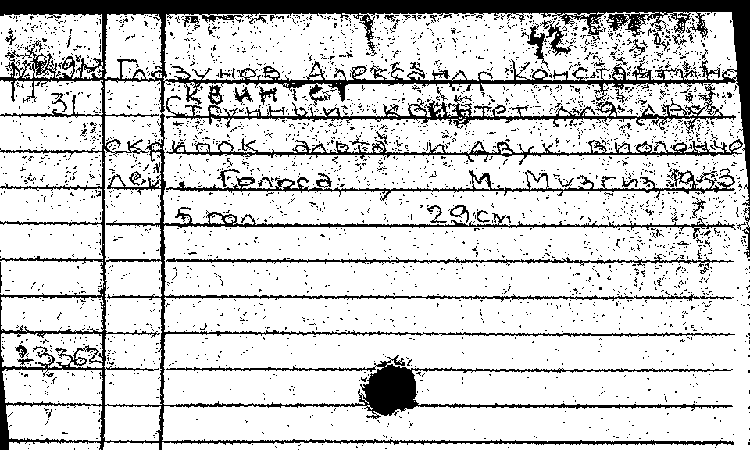 42
Глазунов, Александр Константино
Квинтет
31 Струнный квинтет для двух
скрипок альта и двух виолонче
лей. Голоса. М. Музгиз 1953
5 гол. 29 см.
23363